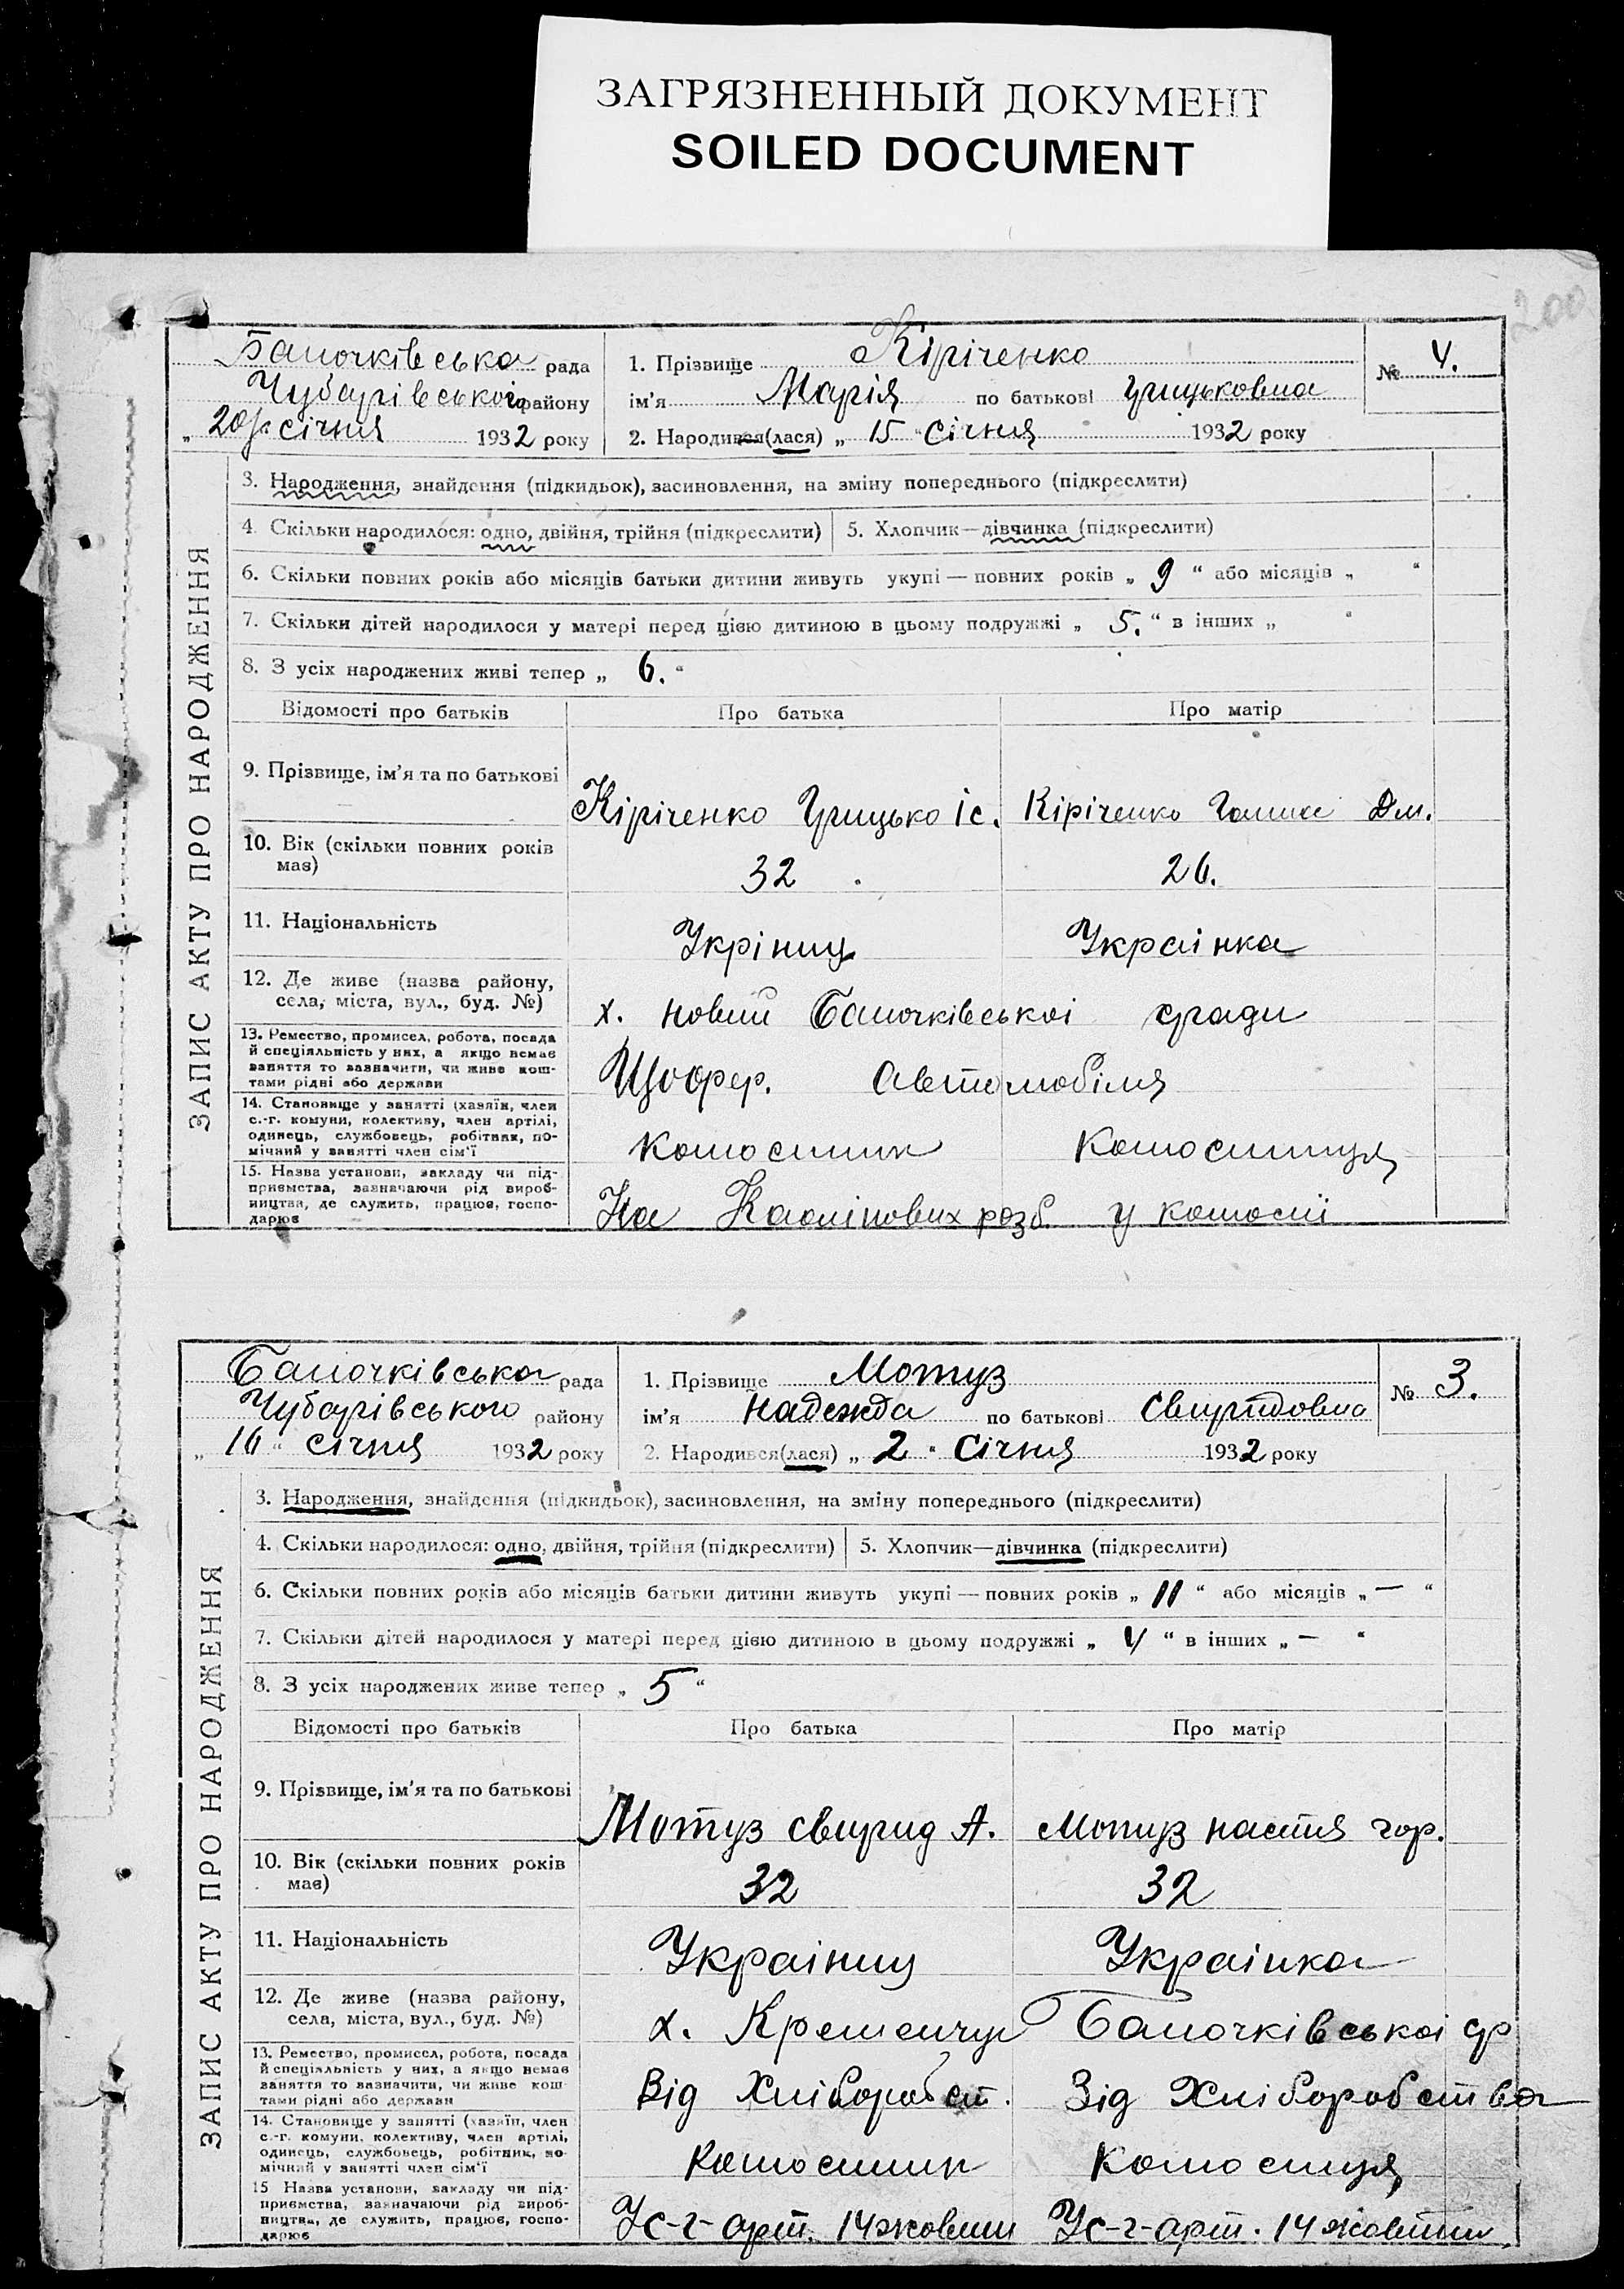 ЗАГРЯЗНЕННЫЙ ДОКУМЕНТ
SOILED DOCUMENT
200
Балочківська рада
1. Прізвище Кіріченко
№ 4.
Чубарівського району
ім'я Марія по батькові Грицьковна
„ 20 січня 1932 року
2. Народився(лася) „ 15 " Січня 1932 року
ЗАПИС АКТУ ПРО НАРОДЖЕННЯ
3. Народження, знайдення (підкидьок), засиновлення, на зміну попереднього (підкреслити)
4. Скільки народилося: одно, двійня, трійня (підкреслити) 5. Хлопчик—дівчинка (підкреслити)
6. Скільки повних років або місяців батьки дитини живуть укупі — повних років „ 9 “ або місяців „ “
7. Скільки дітей народилося у матері перед цією дитиною в цьому подружжі „ 5. “ в інших „ “
8. З усіх народжених живі тепер „ 6. “
Відомості про батьків Про батька Про матір
9. Прізвище, ім'я та по батькові
Кіріченко Грицько Іс. Кіріченко Галина Дм.
10. Вік (скільки повних років має)
32 26.
11. Національність
Укріниц Украінка
12. Де живе (назва району, села, міста, вул., буд. №)
х. новий Балочківськоі сради
13. Ремество, промисел, робота, посада й спеціяльність у них, а якщо немає заняття то зазначити, чи живе коштами рідні або держави
Шофер. Автомобіля
14. Становище у занятті (хазяїн, член с.-г. комуни, колективу, член артілі, одинець, службовець, робітник, помічний у занятті член сім'ї
колосник Колосниця
15. Назва установи, закладу чи підприємства, зазначаючи рід виробництва, де служить, працює, господарює
На Каолінових розб. у колосіі
Балочківська рада
1. Прізвище Мотуз
№ 3.
Чубарівського району
ім'я Надежда по батькові Свиридовна
„ 16 “ січня 1932 року
2. Народився(лася) „ 2 “ Січня 1932 року
ЗАПИС АКТУ ПРО НАРОДЖЕННЯ
3. Народження, знайдення (підкидьок), засиновлення, на зміну попереднього (підкреслити)
4. Скільки народилося: одно, двійня, трійня (підкреслити) 5. Хлопчик—дівчинка (підкреслити)
6. Скільки повних років або місяців батьки дитини живуть укупі — повних років „ 11 “ або місяців „ — “
7. Скільки дітей народилося у матері перед цією дитиною в цьому подружжі „ 4 “ в інших „ — “
8. З усіх народжених живе тепер „ 5 “
Відомості про батьків Про батька Про матір
9. Прізвище, ім'я та по батькові
Мотуз свирид А. Мотуз настя гор.
10. Вік (скільки повних років має)
32 32
11. Національність
Украіниц Украінка
12. Де живе (назва району, села, міста, вул., буд. №)
х. Кременчук Балочківськоі ср
13. Ремество, промисел, робота, посада й спеціяльність у них, а якщо немає заняття то зазначити, чи живе коштами рідні або держави
Від Хліборобст. Зід Хліборобства
14. Становище у занятті (хазяїн, член с.-г. комуни, колективу, член артілі, одинець, службовець, робітник, помічний у занятті член сім'ї
Колосник Колосниця
15 Назва установи, закладу чи підприємства, зазначаючи рід виробництва, де служить, працює, господарює
Ус-г-арт. 14 жовтни Ус-г-арт. 14 жовтни